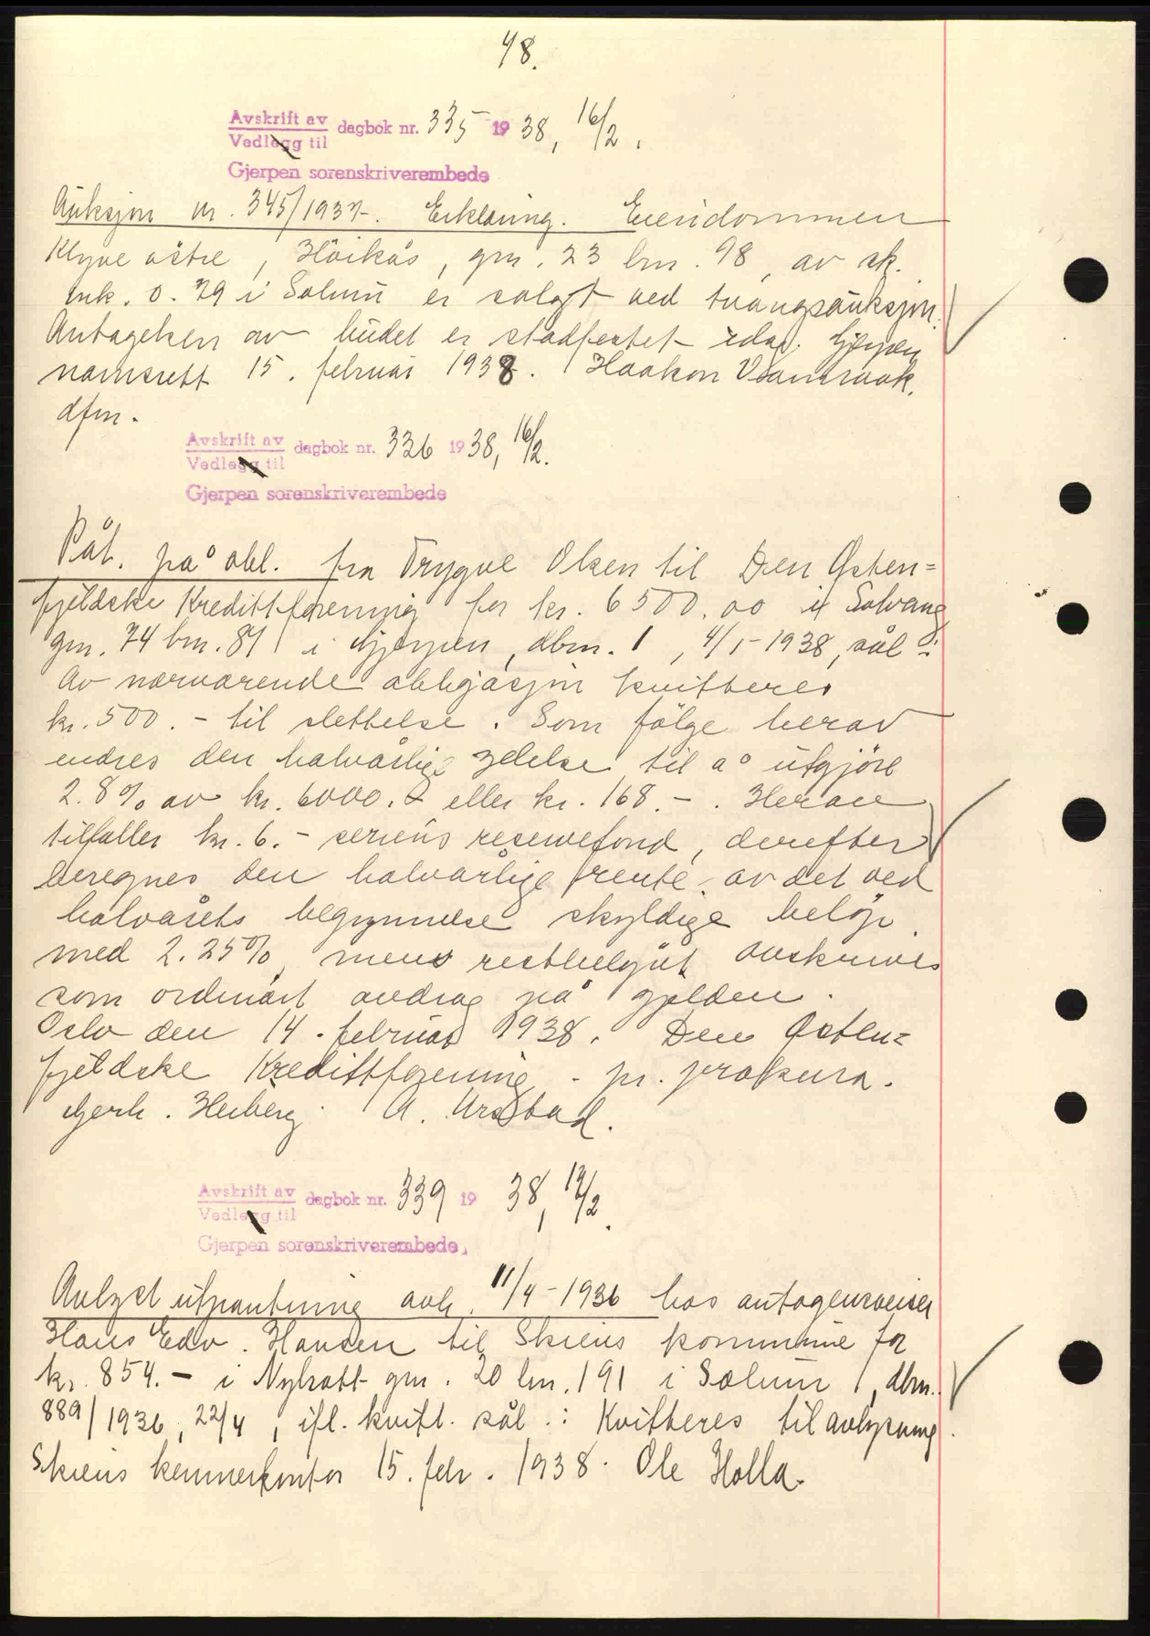 48.
Avskrift av dagbok nr. 335 1938, 16/2.
Vedlegg til
Gjerpen sorenskriverembede
Auksjon nr. 345/1937. Erklæring. Eiendommen
Klyve østre, Håikås, gnr. 23 bnr. 98, av sk.
mk. 0.29 i Solum er solgt ved tvangsauksjon.
Antagelsen av budet er stadfestet idag. Gjerpen
namsrett 15. februar 1938. Haakon
dfm.
Avskrift av dagbok nr. 336 1938, 16/2.
Vedlegg til
Gjerpen sorenskriverembede
Påt. på obl. fra Trygve Olsen til Den Østen=
fjeldske Kredittforening for kr. 6500.00 i Solvang
gnr. 74 bnr. 81 i Gjerpen, dbnr. 1, 4/1-1938, sål.:
Av nærværende obligasjon kvitteres
kr. 500.- til slettelse. Som følge herav
endres den halvårlige ydelse til å utgjøre
2.8% av kr. 6000.- eller kr. 168.-. Herav
tilfaller kr. 6.- seriens reservefond, derefter
beregnes den halvårlige rente av det ved
halvårets begynnelse skyldige beløp
med 2.25%, mens restbeløpet avskrives
som ordinært avdrag på gjelden.
Oslo den 14. februar 1938. Den Østen=
fjeldske Kredittforening. pr. prokura.
Gerh. Heiberg. A. Arstad.
Avskrift av dagbok nr. 339 1938, 17/2.
Vedlegg til
Gjerpen sorenskriverembede,
Avlyst utpantning avh. 11/4-1936 hos
Hans Edv. Hansen til Skiens kommune for
kr. 854.- i Nyhatt gnr. 20 bnr. 191 i Solum, dbnr.
889/1936, 22/4, ifl. kvitt. sål.: Kvitteres til avlysning.
Skiens kemnerkontor 15. febr. 1938. Ole Holla.